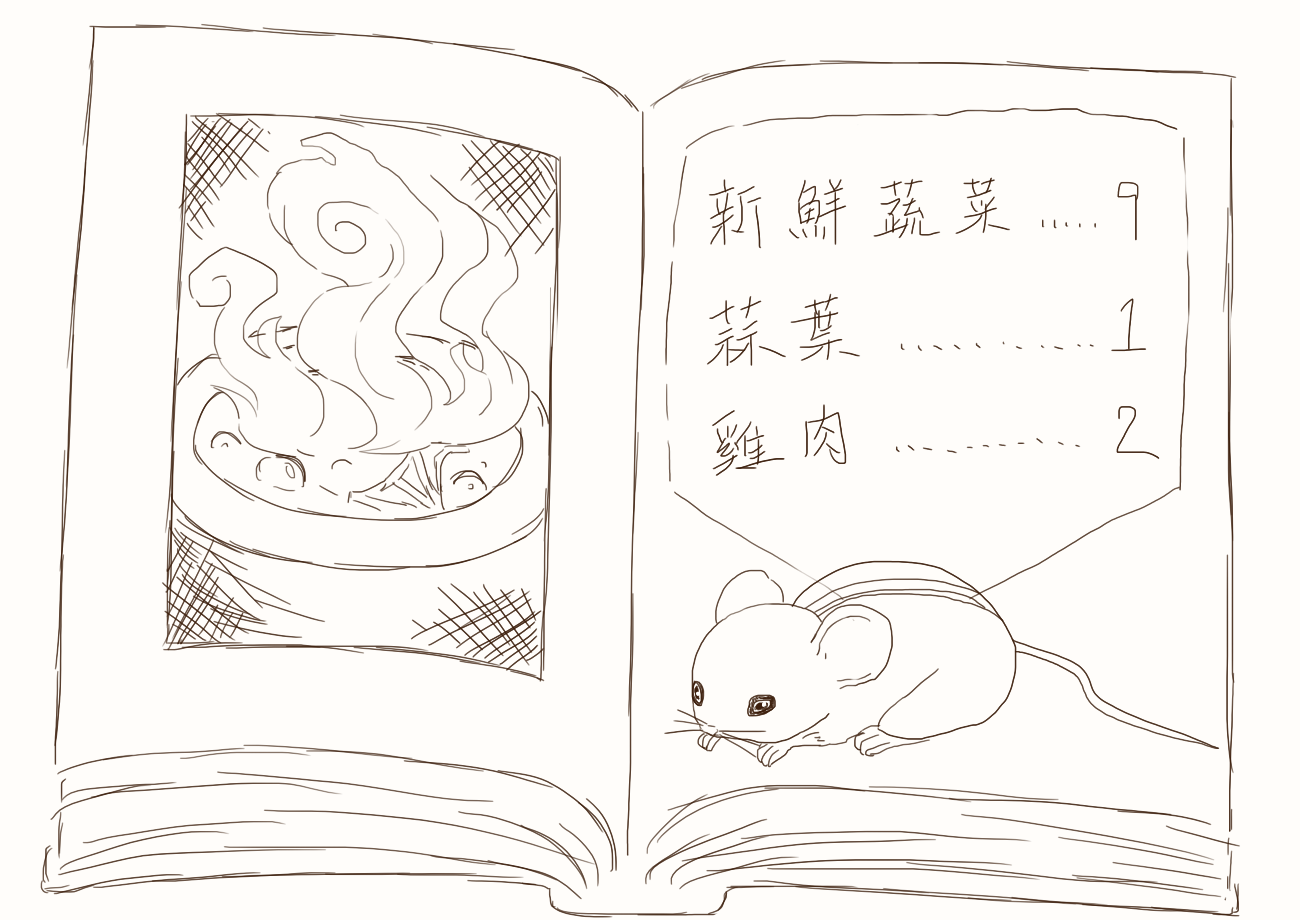 新鮮蔬菜 ...... 9
蒜葉 .............. 1
雞肉 ............ 2